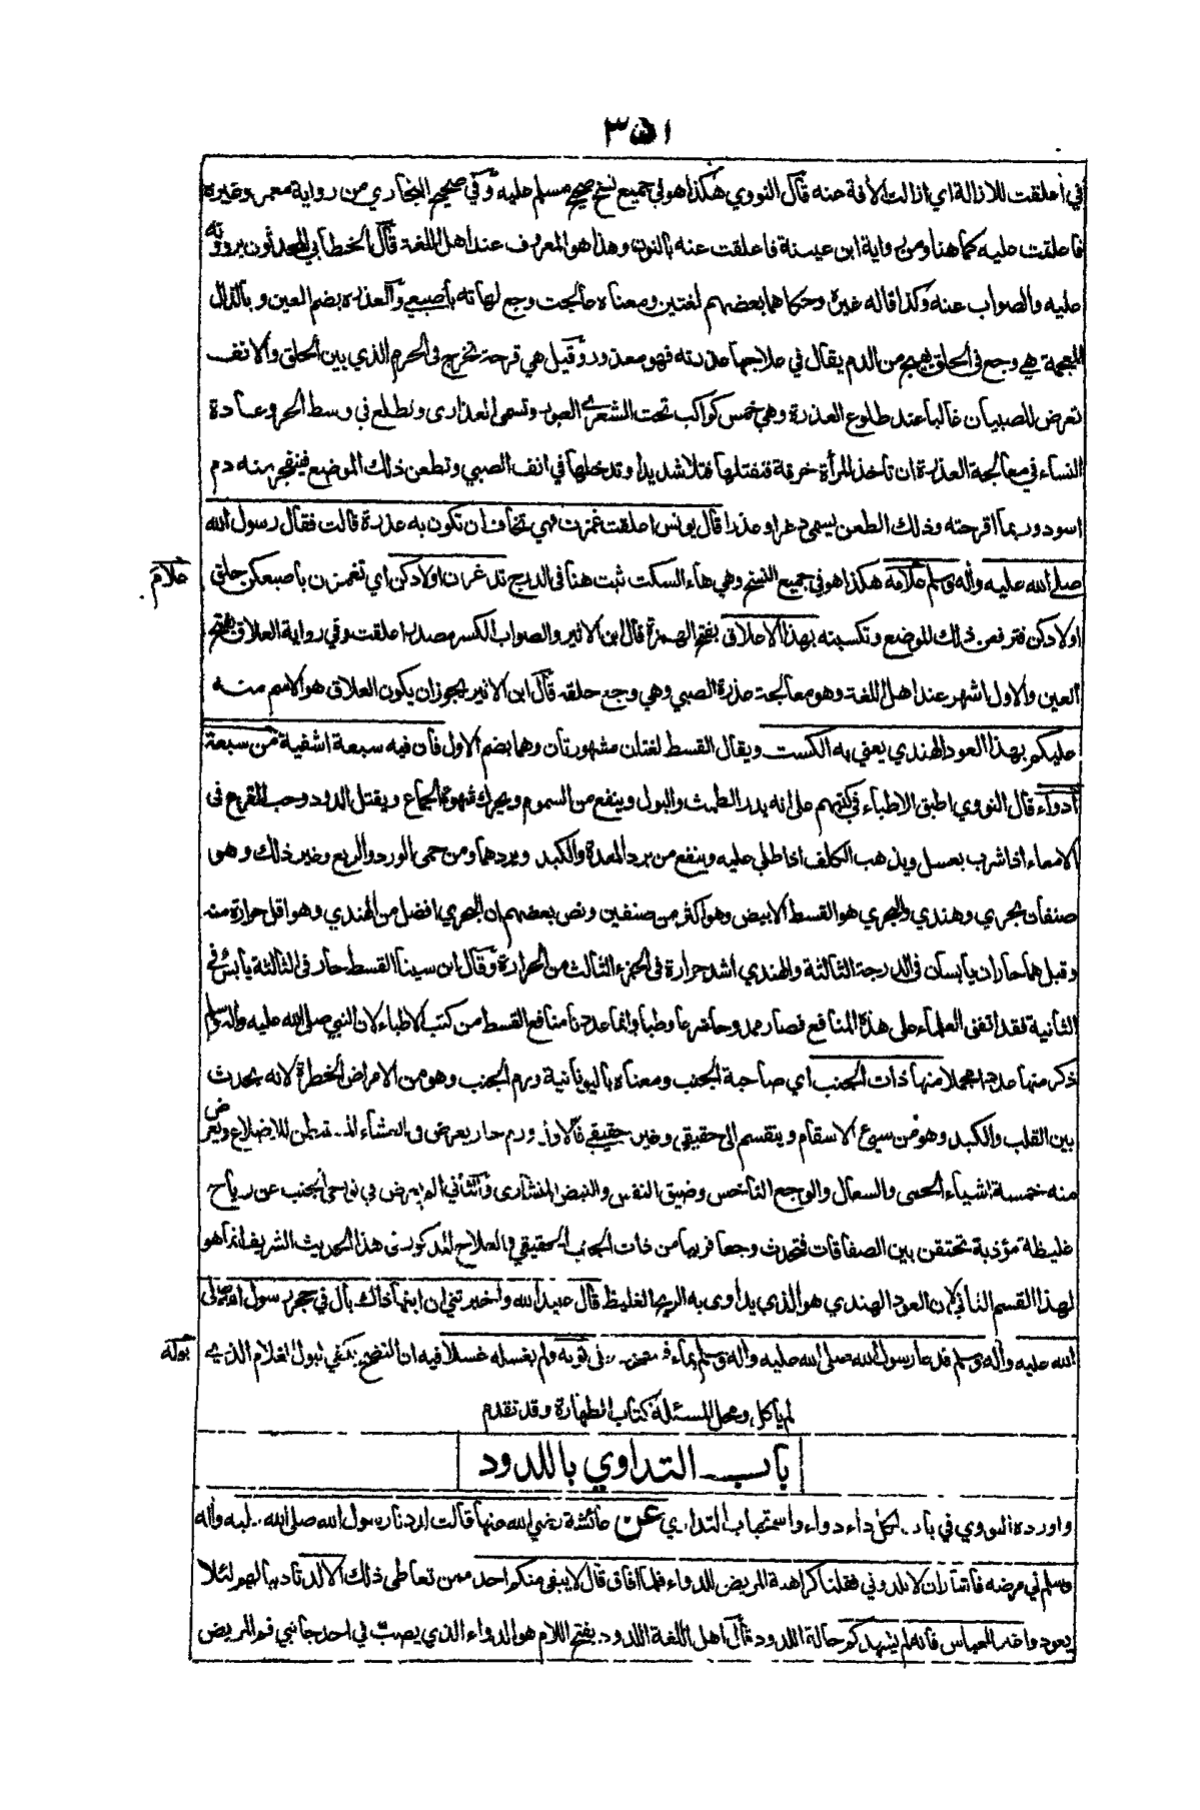 ٣۵١
في أعلقت للازالة اي ازالت الأفة عنه قال النووي هكذا هو في جميع نسخ صحيح مسلم عليه وفي صحيح البخاري من رواية معمر وغيره
فاعلقت عليه كما هنا ومن رواية ابن عيينة فاعلقت عنه بالنون وهذا هو المعروف عند اهل اللغة قال الخطابي المحدثون يروونه
عليه والصواب عنه وكذا قاله غيره وحكاهما بعضهم لغتين ومعناه عالجت وجع لهاته بأصبعي والعذرة بضم العين وبالذال
المعجمة هي وجع في الحلق يهيج من الدم يقال في علاجها عذرته فهو معذور وقيل هي قرحة تخرج في الخرم الذي بين الحلق والانف
تعرض للصبيان غالبا عند طلوع العذرة وهي خمس كواكب تحت الشعرى العبور وتسمى العذارى وتطلع في وسط الحر وعادة
النساء في معالجة العذرة ان تاخذ المرأة خرقة فتفتلها فتلا شديدا وتدخلها في انف الصبي وتطعن ذلك الموضع فينفجر منه دم
اسود وربما اقرحته وذلك الطعن يسمى دغرا وعذرا قال يونس اعلقت غمزت فهي تخاف ان تكون به عذرة قالت فقال رسول الله
صلى الله عليه واله وسلم علامه هكذا هو في جميع النسخ وهي هاء السكت ثبت هنا في الدرج تدغرن اولادكن اي تغمزن بأصبعكن حلق
علام
اولادكن فترفعن ذلك الموضع وتكبسنه بهذا الاعلاق بفتح الهمزة قال ابن الاثير والصواب الكسر مصدر اعلقت وفي رواية العلاق بفتح
العين والاول اشهر عند اهل اللغة وهو معالجة عذرة الصبي وهي وجع حلقه قال ابن الاثير يجوز ان يكون العلاق هو الاسم منه
عليكم بهذا العود الهندي يعني به الكست ويقال القسط لغتان مشهورتان وهما بضم الاول فان فيه سبعة اشفية من سبعة
ادواء قال النووي اطبق الاطباء في كتبهم على انه يدر الطمث والبول وينفع من السموم ويحرك شهوة الجماع ويقتل الدود وحب القرع فى
الامعاء اذا شرب بعسل ويذهب الكلف اذا طلي عليه وينفع من برد المعدة والكبد وبردهما ومن حمى الورد والربع وغير ذلك وهو
صنفان بحري وهندي والبحري هو القسط الابيض وهو اكثر من صنفين ونص بعضهم ان البحري افضل من الهندي وهو اقل حرارة منه
وقيل هما حاران يابسان في الدرجة الثالثة والهندي اشد حرارة في الجزء الثالث من الحرارة وقال ابن سينا القسط حار في الثالثة يابس في
الثانية فقد اتفق العلماء على هذه المنافع فصار ممدوحا شرعا وطبا وانما عددنا منافع القسط من كتب الاطباء لان النبي صلى الله عليه واله وسلم
ذكر منها عددا مجملا منها ذات الجنب اي صاحبة الجنب ومعناه باليونانية ورم الجنب وهو من الامراض الخطرة لانه يحدث
بين القلب والكبد وهو من سيئ الاسقام وينقسم الى حقيقي وغير حقيقي فالاول ورم حار يعرض في الغشاء المستبطن للاضلاع ويعرض
منه خمسة اشياء الحمى والسعال والوجع الناخس وضيق النفس والنبض المنشارى والثاني الم يعرض في نواحي الجنب عن رياح
غليظة مؤذية تحتقن بين الصفاقات فتحدث وجعا قريبا من ذات الجنب الحقيقي والعلاج المذكور في هذا الحديث الشريف انما هو
لهذا القسم الثاني لان العود الهندي هو الذي يداوى به الريح الغليظ قال عبيد الله واخبرتني ان ابنها ذاك بال في حجر رسول الله صلى
الله عليه واله وسلم فدعا رسول الله صلى الله عليه واله وسلم بماء فنضحه على ثوبه ولم يغسله غسلا فيه ان النضح يكفي لبول الغلام الذي
بوله
لم يأكل ومحل المسئلة كتاب الطهارة وقد تقدم
باب التداوي باللدود
واورده النووي في باب لكل داء دواء واستحباب التداوي عن عائشة رضي الله عنها قالت لددنا رسول الله صلى الله عليه واله
وسلم في مرضه فاشار ان لا تلدوني فقلنا كراهة المريض للدواء فلما افاق قال لا يبقى منكم احد ممن تعاطى ذلك الا لد تاديبا لهم لئلا
يعودوا غير العباس فانه لم يشهدكم حالة اللدود قال اهل اللغة اللدود بفتح اللام هو الدواء الذي يصب في احد جانبي فم المريض